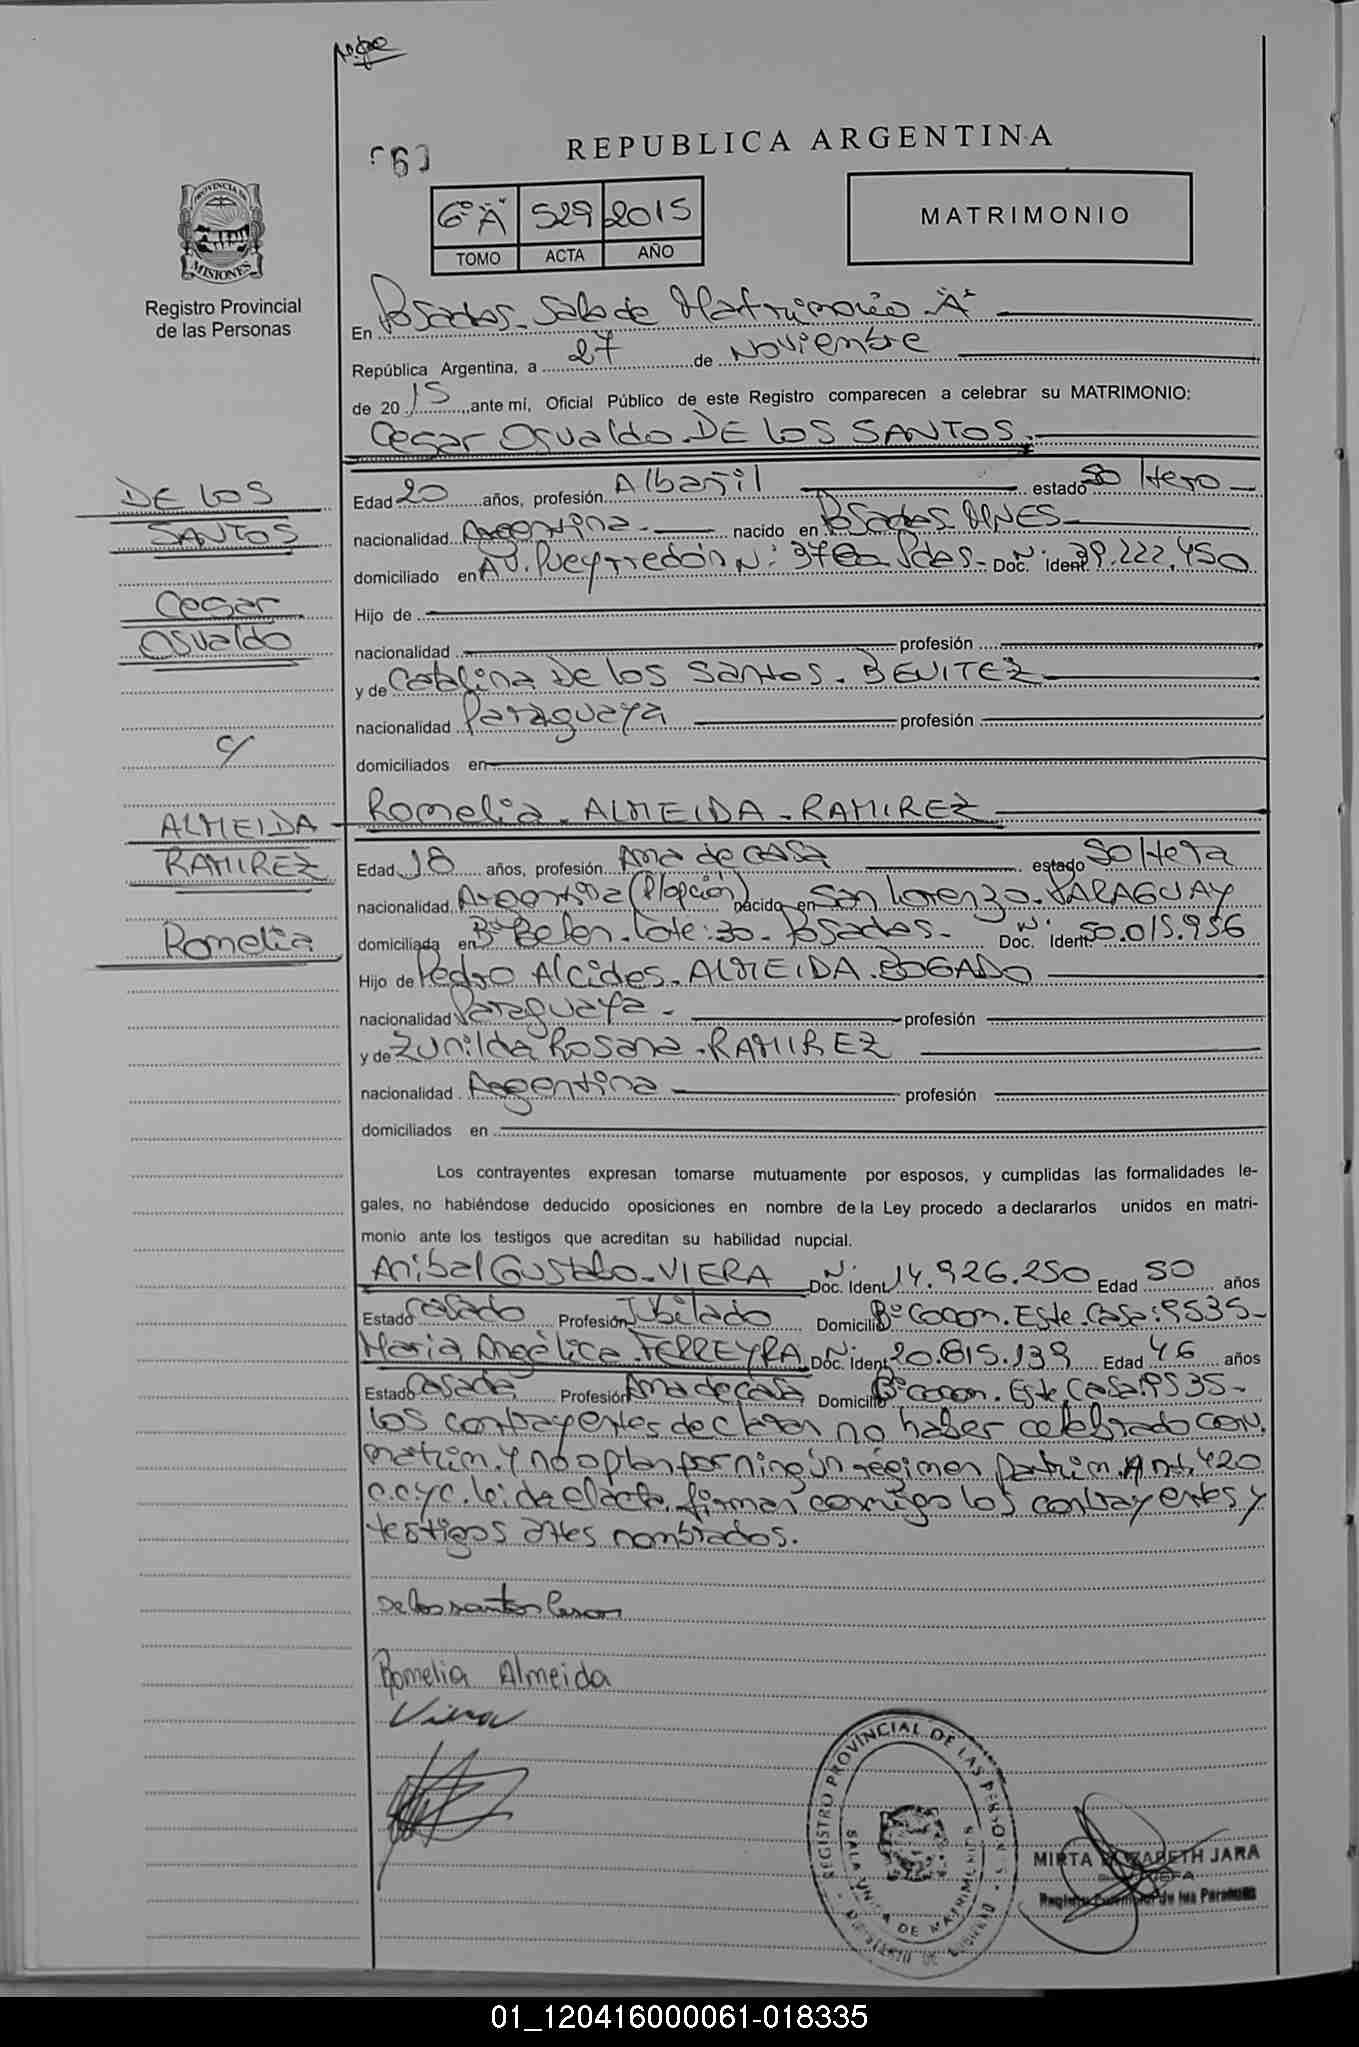 REPUBLICA ARGENTINA
6º "A" 529 2015
TOMO ACTA AÑO
MATRIMONIO
PROVINCIA DE
MISIONES
Registro Provincial
de las Personas
En Posadas. Sala de Matrimonio "A"
República Argentina, a 27 de Noviembre
de 2015, ante mí, Oficial Público de este Registro comparecen a celebrar su MATRIMONIO:
Cesar Osvaldo DE LOS SANTOS.
DE LOS
SANTOS
Cesar
Osvaldo
c/
ALMEIDA
RAMIREZ
Romelia
Edad 20 años, profesión Albañil estado Soltero
nacionalidad Argentina. nacido en Posadas MNES
domiciliado en AV. Pueyrredón N: Pdas. Doc. N. Ident. 39.222.450
Hijo de
nacionalidad profesión
y de Catalina De los Santos. BENITEZ
nacionalidad Paraguaya profesión
domiciliados en
Romelia. ALMEIDA. RAMIREZ
Edad 18 años, profesión Ama de casa estado Soltera
nacionalidad Argentina (P/opción) nacido en San Lorenzo. PARAGUAY
domiciliada en Bº Belen. Lote: 30. Posadas. Doc. N. Ident 50.015.956
Hijo de Pedro Alcides. ALMEIDA. BOGADO
nacionalidad Paraguaya. profesión
y de Zunilda Rosana. RAMIREZ
nacionalidad Argentina profesión
domiciliados en
Los contrayentes expresan tomarse mutuamente por esposos, y cumplidas las formalidades le-
gales, no habiéndose deducido oposiciones en nombre de la Ley procedo a declararlos unidos en matri-
monio ante los testigos que acreditan su habilidad nupcial.
Anibal Gustavo. VIERA Doc. N. Ident 14.926.250 Edad 50 años
Estado Casado Profesión Jubilado Domicilio Bº Cocom. Este. Casa: 9535-
Maria Angélica. FERREYRA Doc. N. Ident 20.815.139 Edad 46 años
Estado Casada Profesión Ama de casa Domicilio Bº Cocom. Este Casa: 9535-
los contrayentes declaran no haber celebrado conv.
matrim. y no optan por ningún régimen patrim. Art. 420
c.c y c. leida el acta, firman conmigo los contrayentes y
testigos antes nombrados.
De los santos Cesar
Romelia Almeida
Viera
REGISTRO PROVINCIAL DE LAS PERSONAS
SALA UNICA DE MATRIMONIOS
MIRTA ELIZABETH JARA
JEFA
Registro Provincial de las Personas
01_120416000061-018335